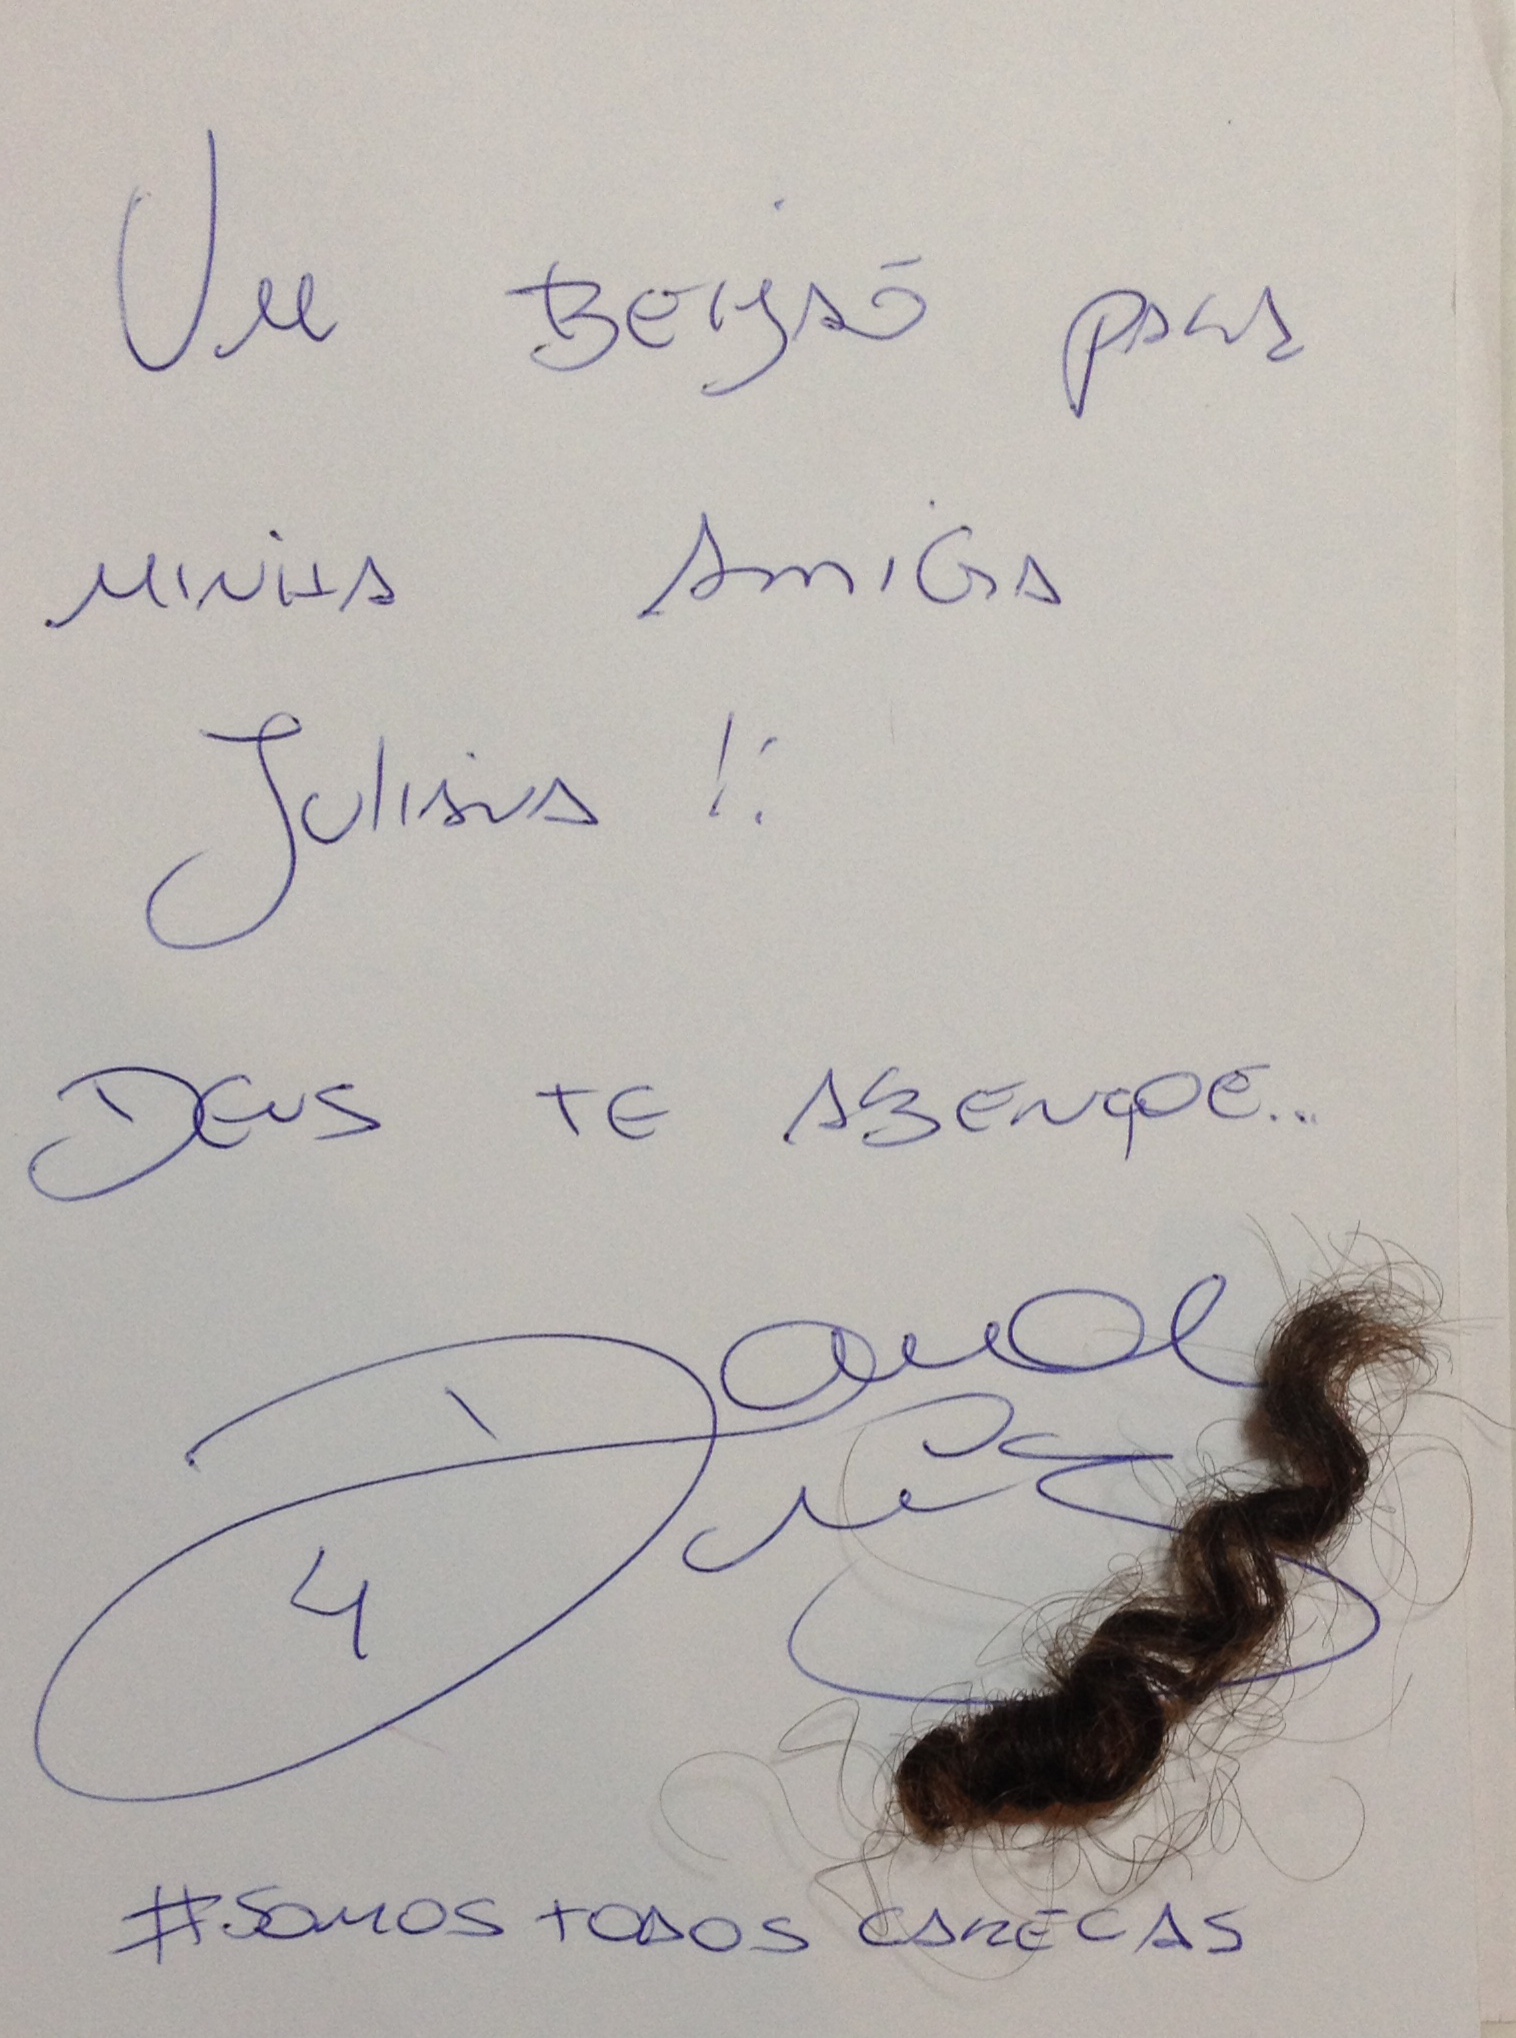 Um BEIJÃO PARA
MINHA AMIGA
JULIANA !!
DEUS TE ABENÇOE...
David
Luiz
4
#SOMOS TODOS CARECAS